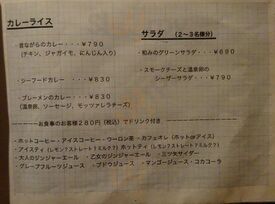 カレーライス
・昔ながらのカレー・・・￥790
(チキン、ジャガイモ、にんじん入り)
・シーフードカレー ・・・￥830
・ブレーメンのカレー・・・￥830
(温泉卵、ソーセージ、モッツァレラチーズ)
サラダ (2～3名様分)
・和みのグリーンサラダ・・・￥690
・スモークチーズと温泉卵の
シーザーサラダ・・・￥790
お食事のお客様280円(税込)でドリンク付き
・ホットコーヒー・アイスコーヒー・ウーロン茶・カフェオレ(ホットorアイス)
・アイスティ(レモン？ストレート？ミルク？)ホットティ(レモン？ストレート？ミルク？)
・大人のジンジャーエール ・乙女のジンジャーエール ・三ツ矢サイダー
・グレープフルーツジュース ・ブドウジュース ・マンゴージュース・コカコーラ